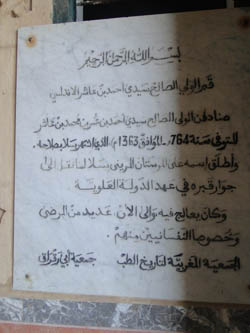 بسم الله الرحمن الرحيم
قبر الولي الصالح سيدي احمد بن عاشر الاندلسي
هنا دفن الولي الصالح سيدي احمد بن محمد بن عاشر
المتوفى سنة 764هـ الموافق 1363م الذي اشتهر بسلا بصلاحه.
وأطلق اسمه على المرستان المريني بسلا لما نقل الى
جوار قبره في عهد الدولة العلوية
وكان يعالج فيه والى الآن عديد من المرضى
وخصوصا النفسانيين منهم.
الجمعية المغربية لتاريخ الطب جمعية أبي رقراق